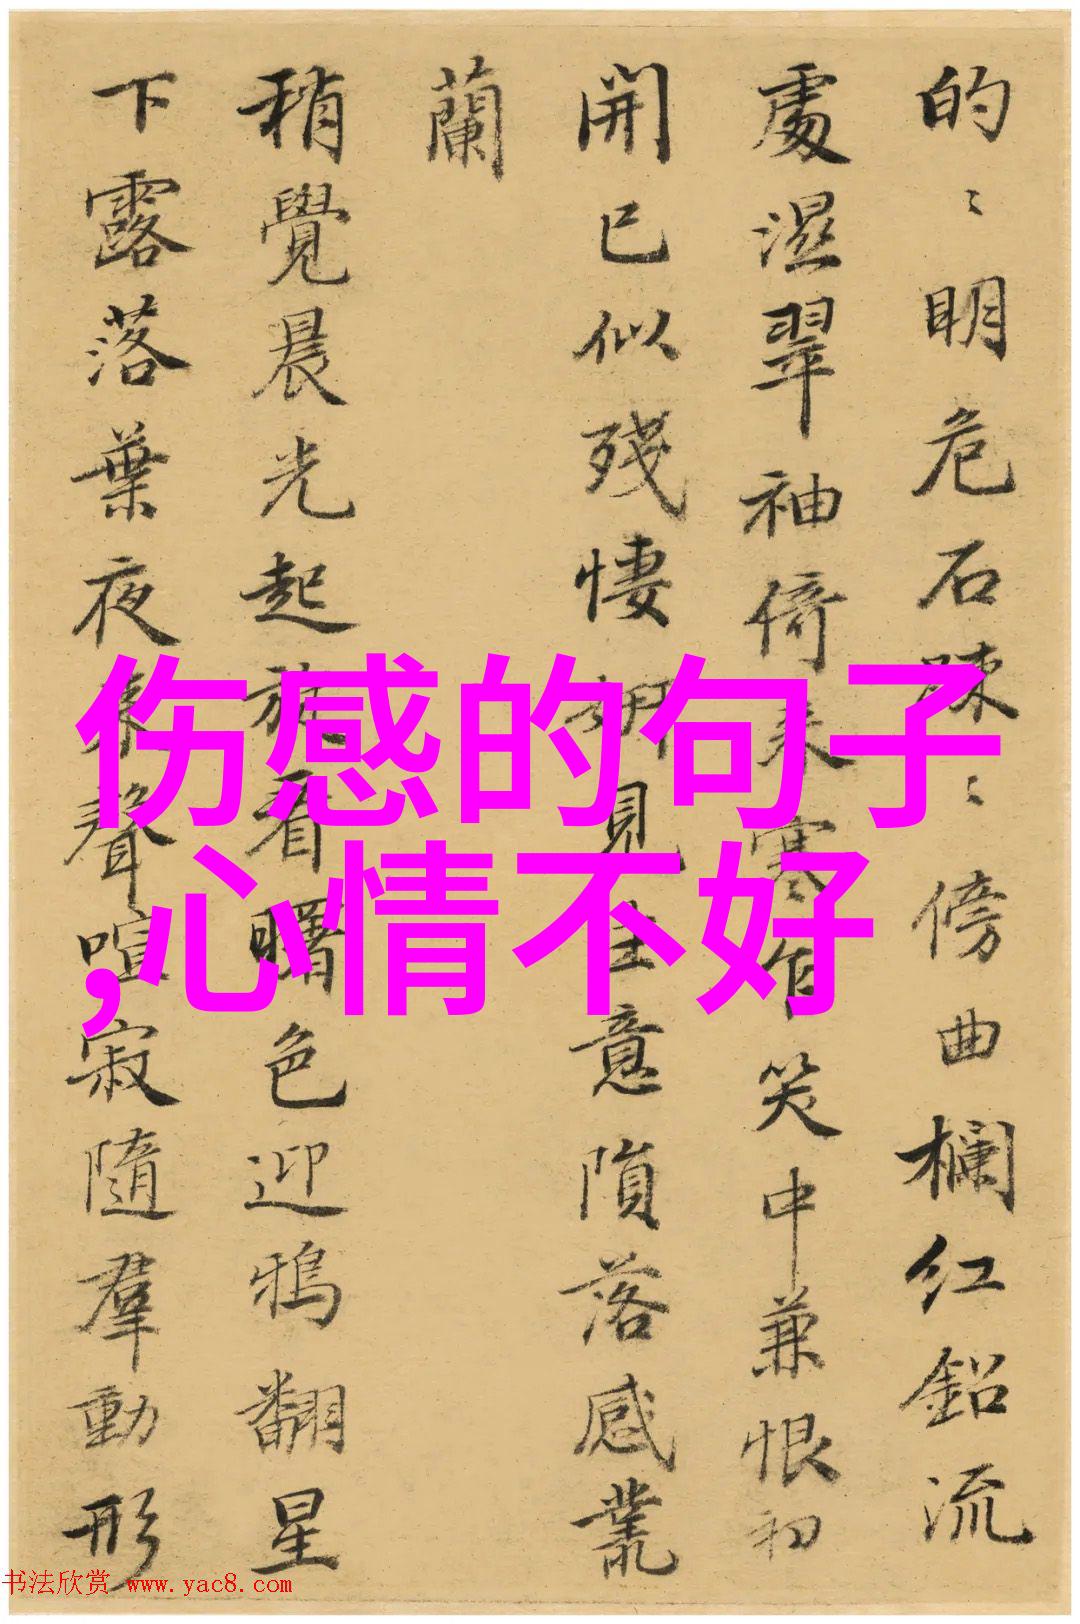 的〻明危石疎〻傍曲欄红鉛流
處濕翠袖倚来寒乍笑中兼恨初
開已似残悽見生意隕落感叢
蘭
稍覺晨光起旋看曙色迎鴉翻星
下露落葉夜来聲喧寂隨羣動形
伤感的句子
,心情不好
书法欣赏 www.yac8.com